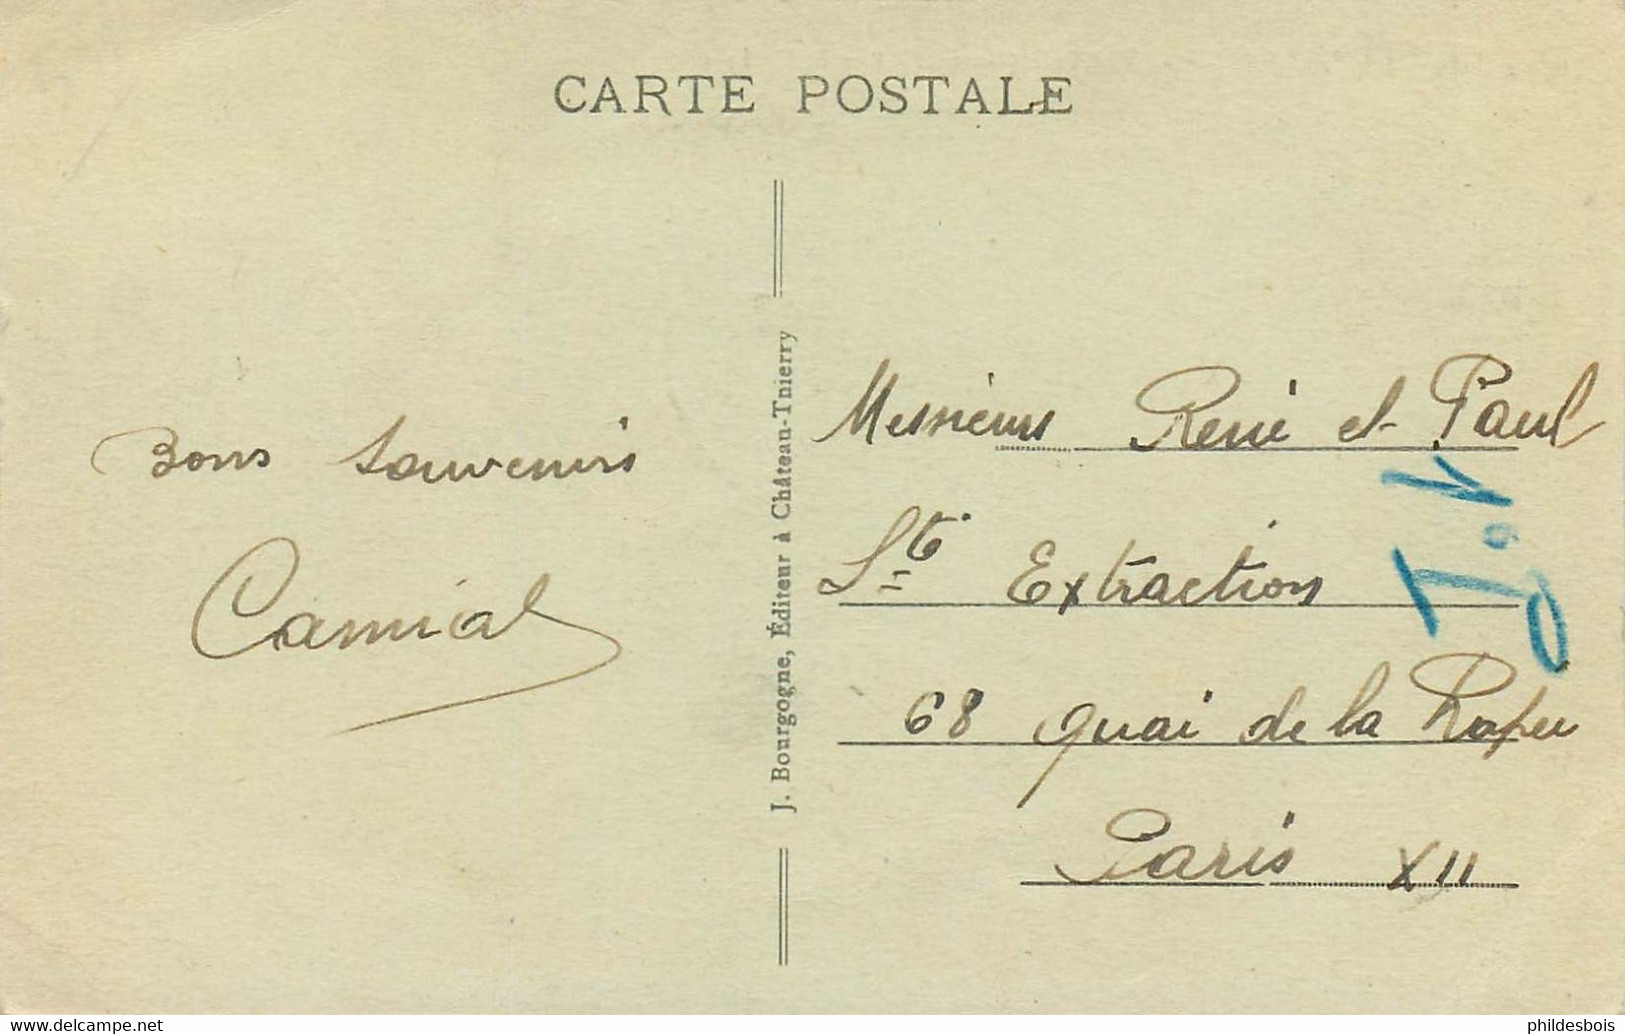 CARTE POSTALE
Bons souvenirs
J. Bourgogne, Éditeur à Château-Thierry
Messieurs René et Paul
Sté Extraction
68 quai de la Rapée
Paris XII
www.delcampe.net
phildesbois